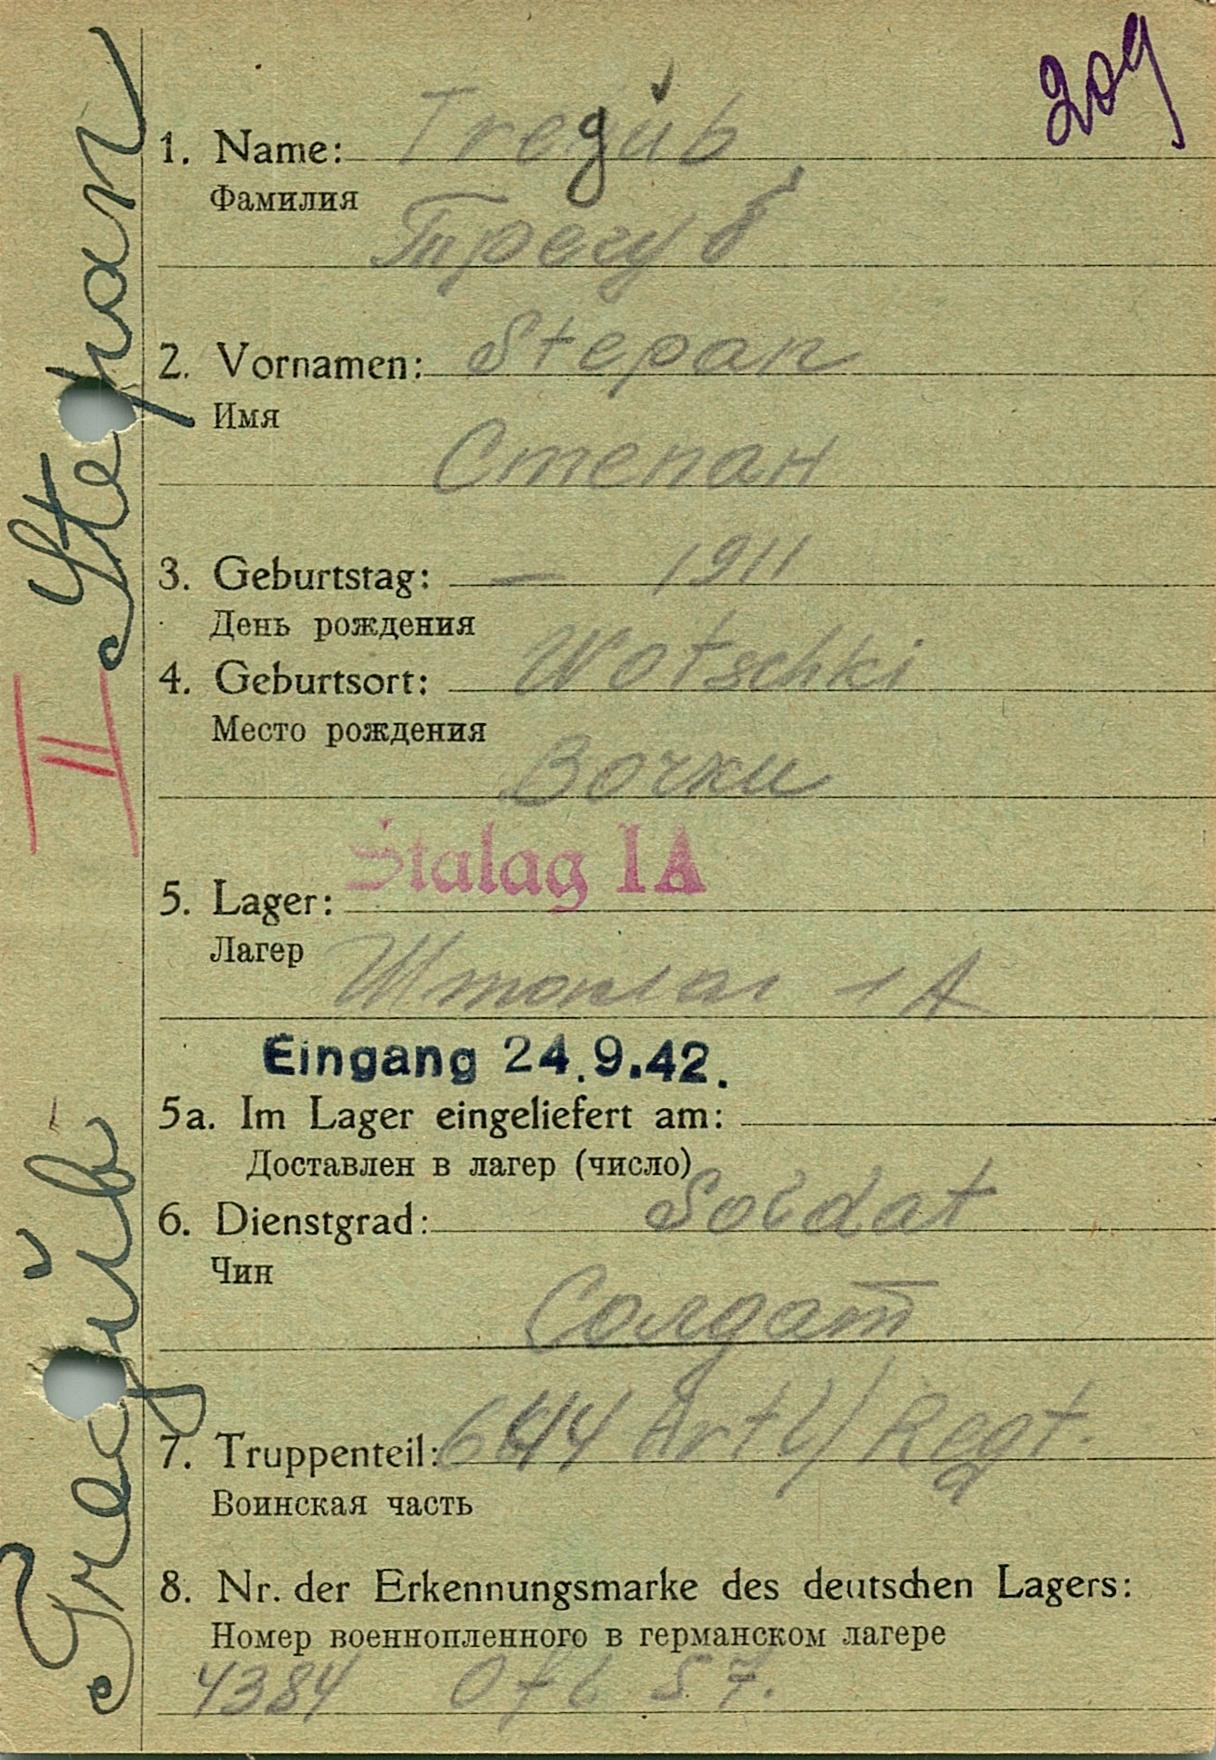 209
1. Name: Tregub
Фамилия
Трегуб
2. Vornamen: Stepan
Имя
Степан
3. Geburtstag: — 1911
День рождения
4. Geburtsort: Wotschki
Место рождения
Вочки
Stalag IA
5. Lager:
Лагер
1 А
Eingang 24.9.42.
5a. Im Lager eingeliefert am:
Доставлен в лагер (число)
6. Dienstgrad: Soldat
Чин
Солдат
7. Truppenteil: 644 Artl/Regt.
Воинская часть
8. Nr. der Erkennungsmarke des deutschen Lagers:
Номер военнопленного в германском лагере
4384 Ofl 57.
Tregŭb Stepan II